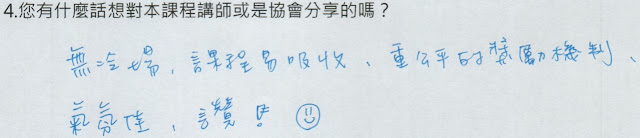 4.您有什麼話想對本課程講師或是協會分享的嗎？
無冷場，課程易吸收、重公平的獎勵機制、
氣氛佳，讚！☺